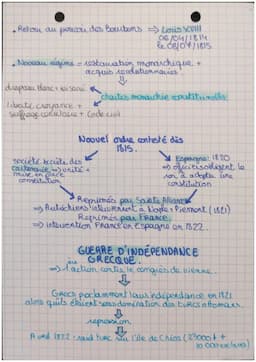 • Retour au pouvoir des Bourbons ⇒ Louis XVIII
06/04/1814
le 08/07/1815.
• Nouveau régime = restauration monarchique +
acquis révolutionnaires
drapeau blanc +
charte monarchie constitutionnelle
liberté, croyance +
suffrage censitaire + Code civil
Nouvel ordre contesté dès
1815.
société secrète des
carbonari ⇒ unité +
mise en place
constitution
Espagne : 1820
⇒ officiers obligent le
roi à adopter une
constitution
Réprimés par Sainte Alliance
⇒ Autrichiens interviennent à Naples + Piémont (1821)
Réprimés par France
⇒ intervention France en Espagne en 1822.
GUERRE D'INDÉPENDANCE
GRECQUE.
⇒ 1 action contre le congrès de Vienne.
Grecs proclament leur indépendance en 1821
alors qu'ils étaient sous domination des turcs ottomans.
répression
Avril 1822 : turc sur l'île de Chios (